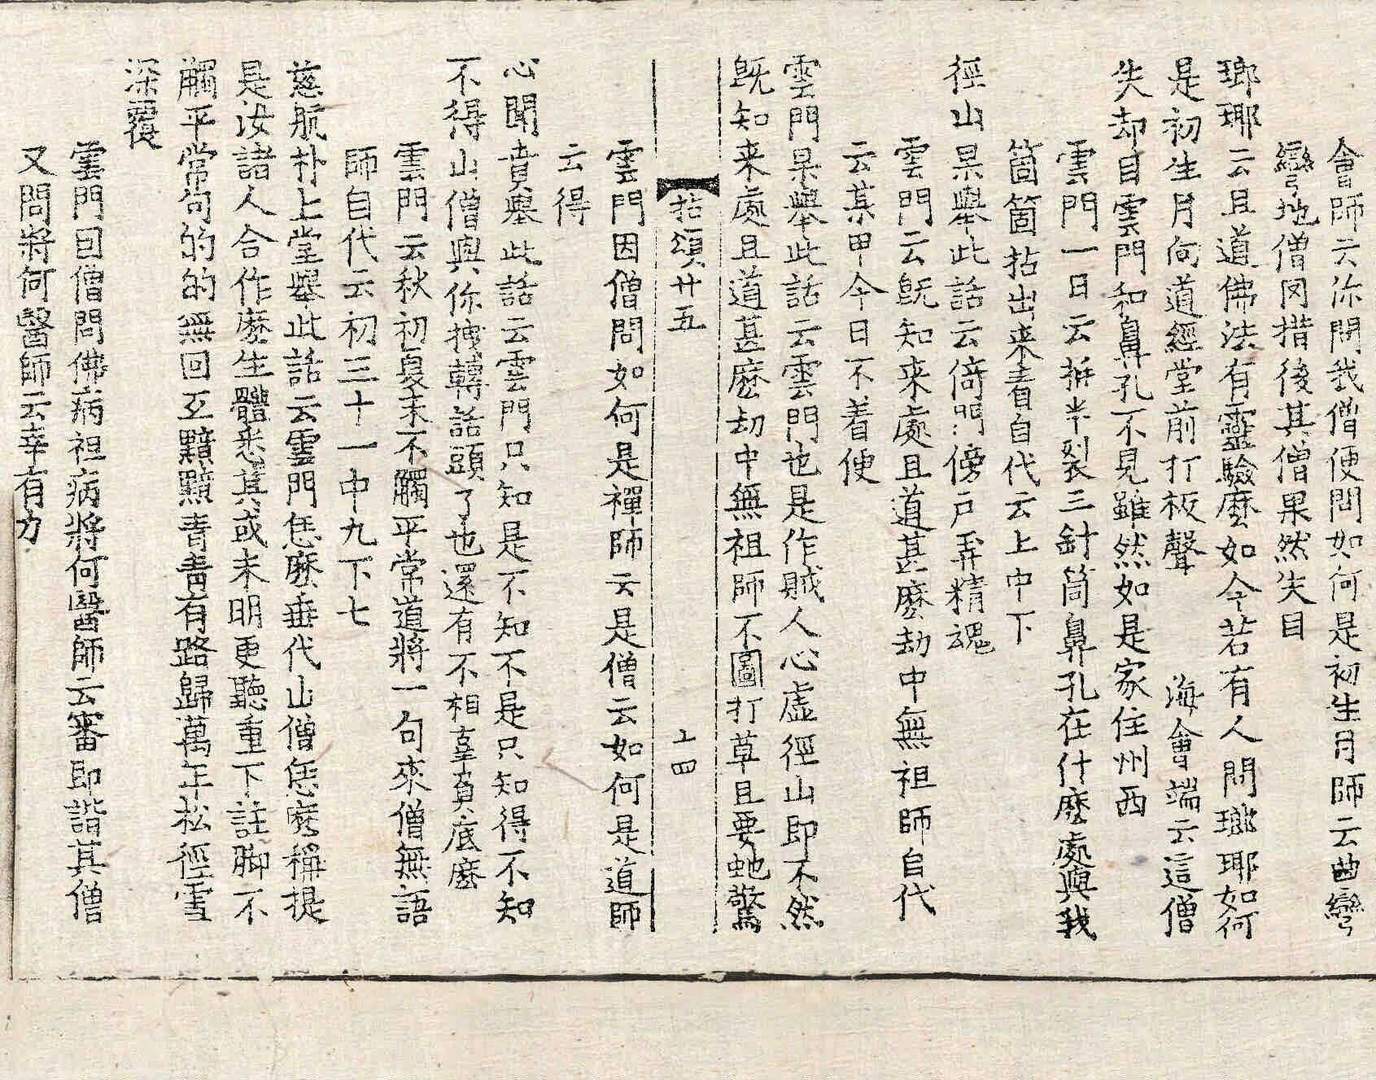 會師云你問我僧便問如何是初生月師云曲彎
彎地僧罔措後其僧果然失目
瑯瑘云且道佛法有靈驗麼如今若有人問瑯瑘如何
是初生月向道經堂前打板聲 海會端云這僧
失却目雲門和鼻孔不見雖然如是家住州西
雲門一日云拆半裂三針筒鼻孔在什麼處與我
箇箇拈出来看自代云上中下
徑山杲舉此話云倚門傍戶弄精魂
雲門云旣知来處且道甚麼劫中無祖師自代
云某甲今日不着便
雲門杲舉此話云雲門也是作賊人心虛徑山即不然
旣知来處且道甚麼劫中無祖師不圖打草且要虵驚
拈頌廿五 十四
雲門因僧問如何是禪師云是僧云如何是道師
云得
心聞賁舉此話云雲門只知是不知不是只知得不知
不得山僧與你拽轉話頭了也還有不相辜負底麼
雲門云秋初夏末不觸平常道將一句來僧無語
師自代云初三十一中九下七
慈航朴上堂舉此話云雲門恁麼垂代山僧恁麼稱提
是汝諸人合作麼生體悉其或未明更聽重下註脚不
觸平常句的的無回互黯黯青青有路歸萬年松徑雪
深覆
雲門因僧問佛病祖病將何醫師云審即諧其僧
又問將何醫師云幸有力